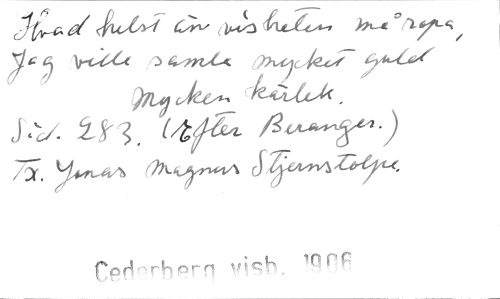 Hvad helst än visheten må ropa,
Jag ville samla mycket guld
Mycken kärlek.
Sid. 283. (Efter Beranger.)
Tx. Jonas Magnus Stjernstolpe.
Cederberg visb. 1906